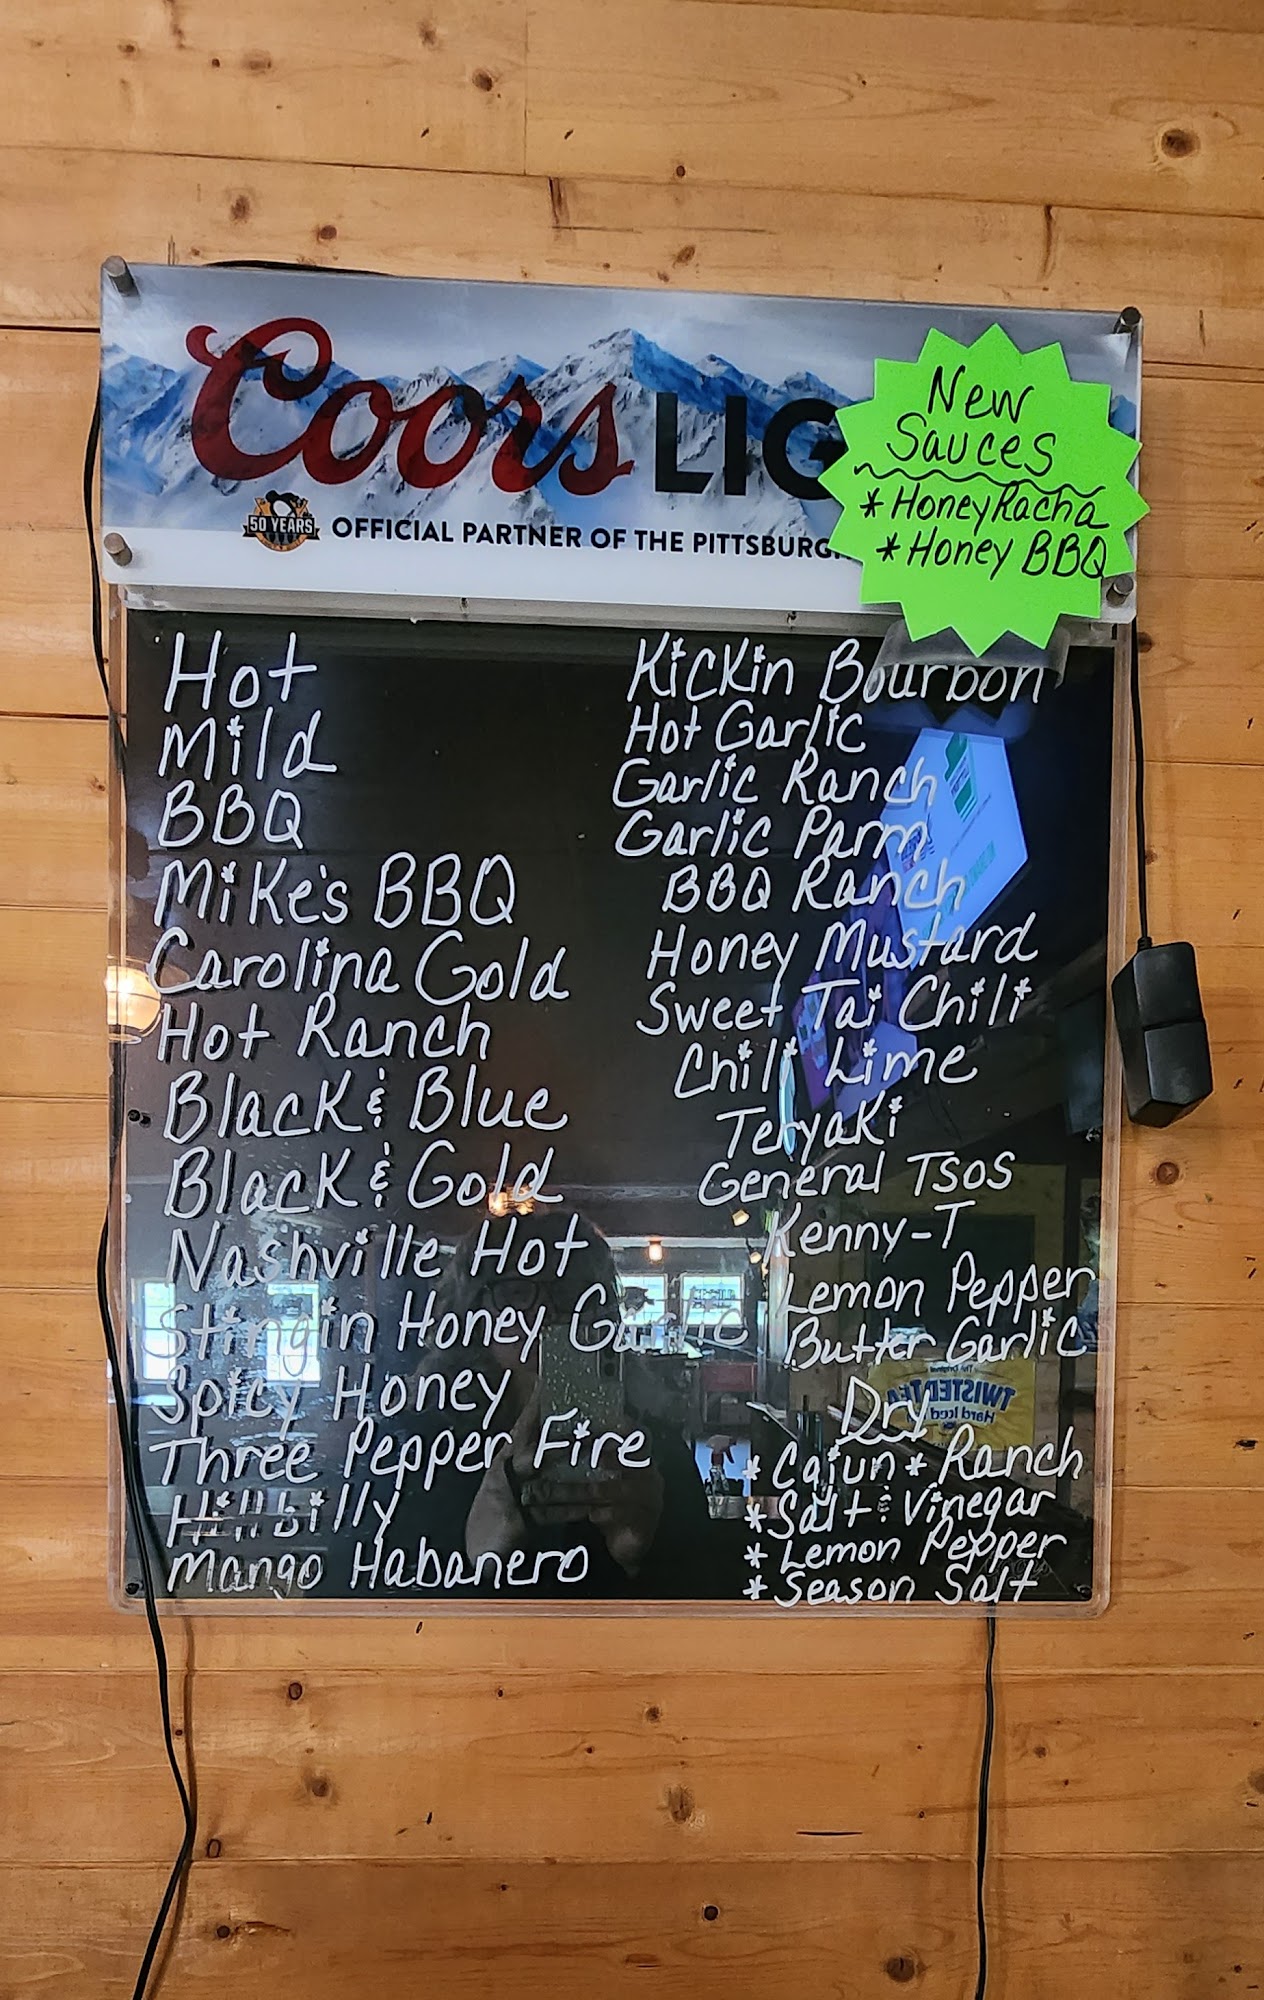 Coors LIG
50 YEARS
OFFICIAL PARTNER OF THE PITTSBURG
New
Sauces
*HoneyRacha
*Honey BBQ
Hot
Mild
BBQ
Mike's BBQ
Carolina Gold
Hot Ranch
Black & Blue
Black & Gold
Nashville Hot
Stingin Honey Garlic
Spicy Honey
Three Pepper Fire
Hillbilly
Mango Habanero
Kickin Bourbon
Hot Garlic
Garlic Ranch
Garlic Parm
BBQ Ranch
Honey Mustard
Sweet Tai Chili
Chili Lime
Teryaki
General Tsos
Kenny-T
Lemon Pepper
Butter Garlic
Dry
*Cajun *Ranch
*Salt & Vinegar
*Lemon Pepper
*Season Salt
TWISTED TEA
Hard Iced